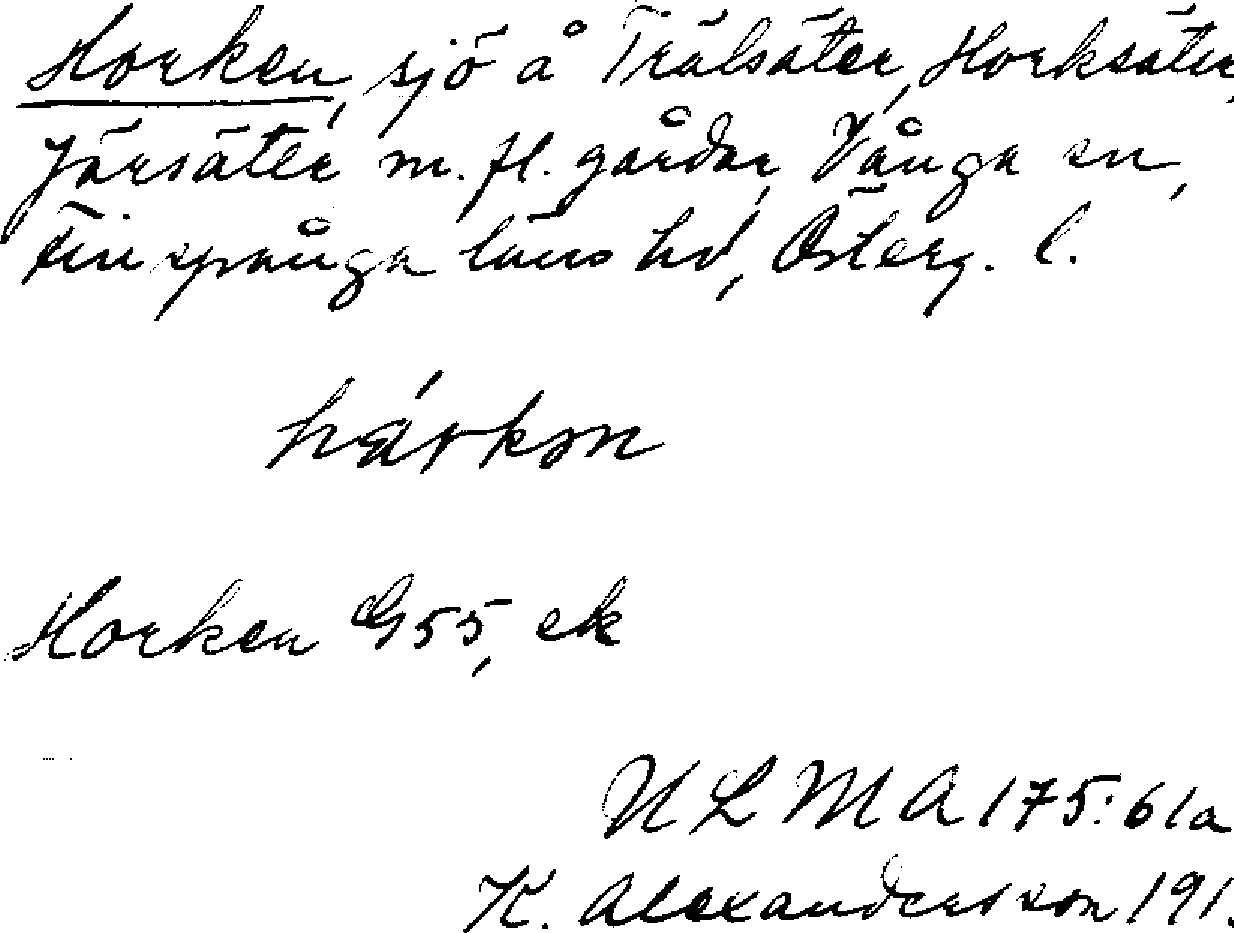 Horken, sjö å Trälsäter, Horksäter,
Järsäter m. fl. gårdar, Vånga sn,
Finspånga läns hd, Österg. l.
hárkɷn
Horken G55, ek
ULMA 175:61a
K. Alexandersson 191